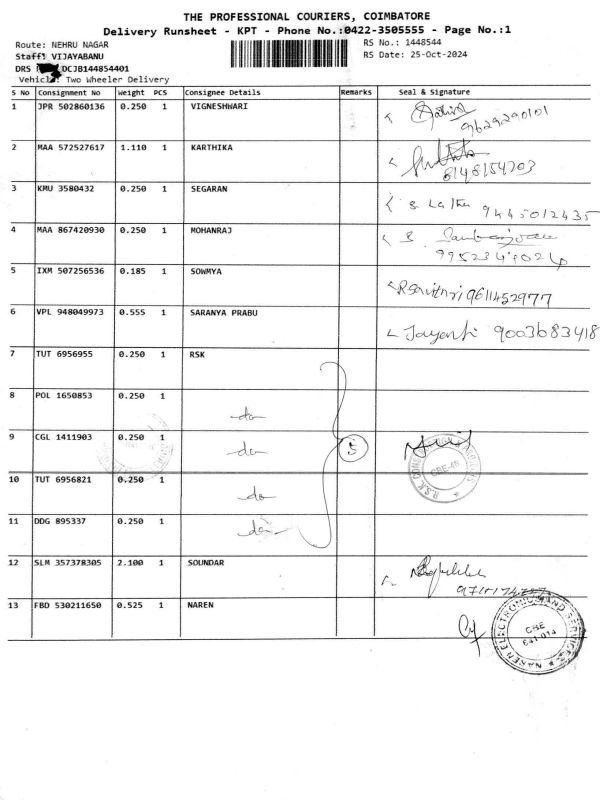 THE PROFESSIONAL COURIERS, COIMBATORE
Delivery Runsheet - KPT - Phone No.:0422-3505555 - Page No.:1
Route: NEHRU NAGAR RS No.: 1448544
Staff: VIJAYABANU RS Date: 25-Oct-2024
DRS DCJB144854401
Vehicle: Two Wheeler Delivery
S No Consignment No Weight PCS Consignee Details Remarks Seal & Signature
1 JPR 502860136 0.250 1 VIGNESHWARI
9629290101
2 MAA 572527617 1.110 1 KARTHIKA
8148154703
3 KMU 3580432 0.250 1 SEGARAN S. Latha 9445012435
4 MAA 867420930 0.250 1 MOHANRAJ
5 IXM 507256536 0.185 1 SOWMYA R Savithri 9611452977
6 VPL 948049973 0.555 1 SARANYA PRABU Jayanti 9003683418
7 TUT 6956955 0.250 1 RSK
8 POL 1650853 0.250 1 do
9 CGL 1411903 0.250 1 do 5
CBE-45
10 TUT 6956821 0.250 1 do
11 DDG 895337 0.250 1 do
12 SLM 357378305 2.100 1 SOUNDAR
13 FBD 530211650 0.525 1 NAREN
NAREN ELECTRONICS AND SERVICES
CBE
641 014